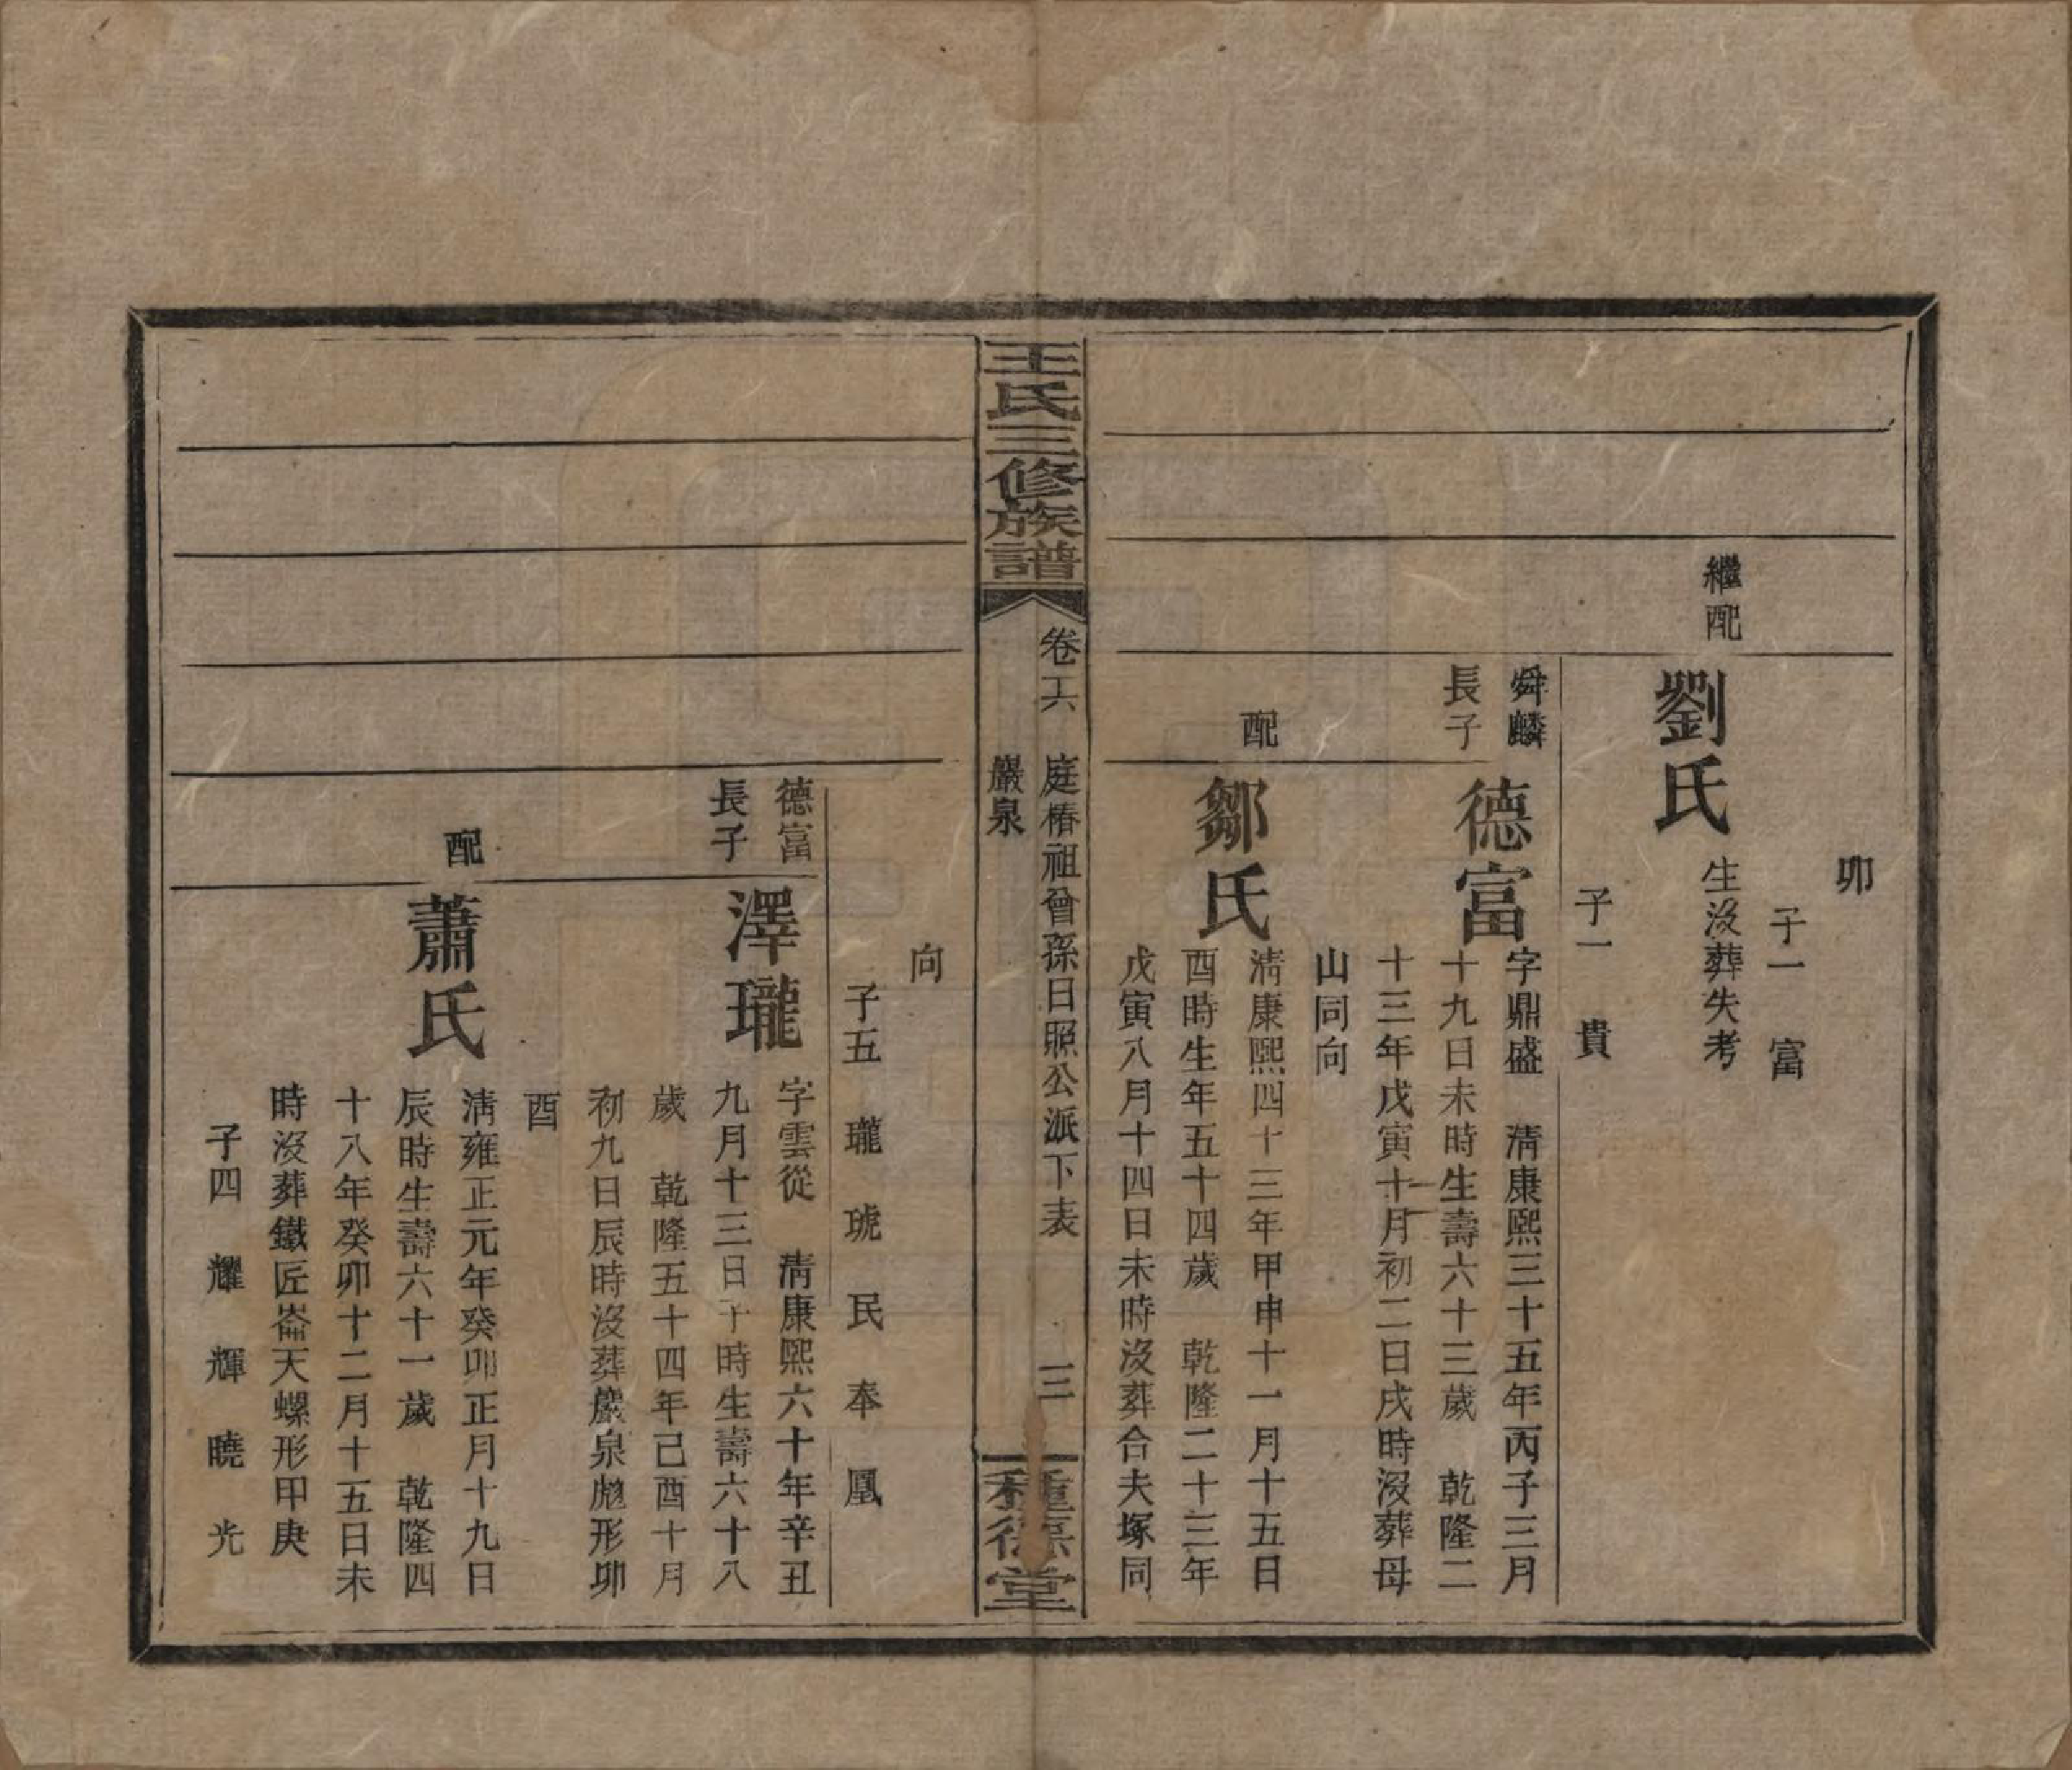 卯
子一　富
繼配
劉氏
生沒葬失考
子一　貴
舜麟
長子
德富
字鼎盛　淸康熙三十五年丙子三月
十九日未時生壽六十三歲　乾隆二
十三年戊寅十月初二日戌時沒葬母
山同向
配
鄒氏
淸康熙四十三年甲申十一月十五日
酉時生年五十四歲　乾隆二十三年
戊寅八月十四日未時沒葬合夫塚同
王氏三修族譜
卷六　庭椿祖曾孫日照公派下表　三
巖泉
種德堂
向
子五　瓏　琥　民　奉　凰
德富
長子
澤瓏
字雲從　淸康熙六十年辛丑
九月十三日子時生壽六十八
歲　乾隆五十四年己酉十月
初九日辰時沒葬巖泉彪形卯
酉
配
蕭氏
淸雍正元年癸卯正月十九日
辰時生壽六十一歲　乾隆四
十八年癸卯十二月十五日未
時沒葬鐵匠崙天螺形甲庚
子四　耀　輝　曉　光